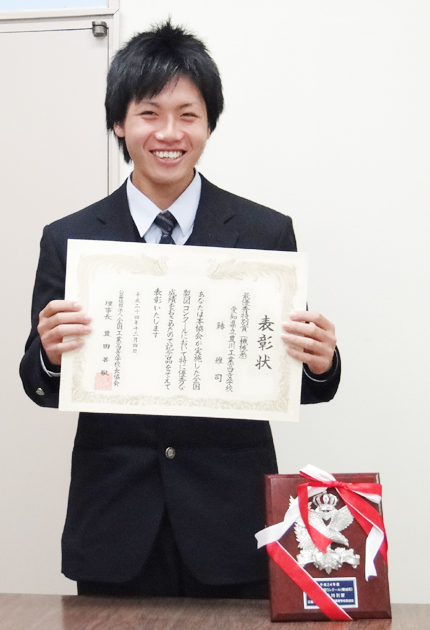 表彰状
最優秀特別賞(機械系)
愛知県立豊川工業高等学校
雅司
あなたは本協会が実施した全国
製図コンクールにおいて特に優秀な
成績をおさめたので記念品をそえて
表彰いたします
平成二十四年十二月四日
公益社団法人全国工業高等学校長協会
理事長 豊田善敬
平成24年度